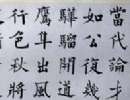 當代論才
如公復幾
驊騮開道
鷹隼出風
行色秋將